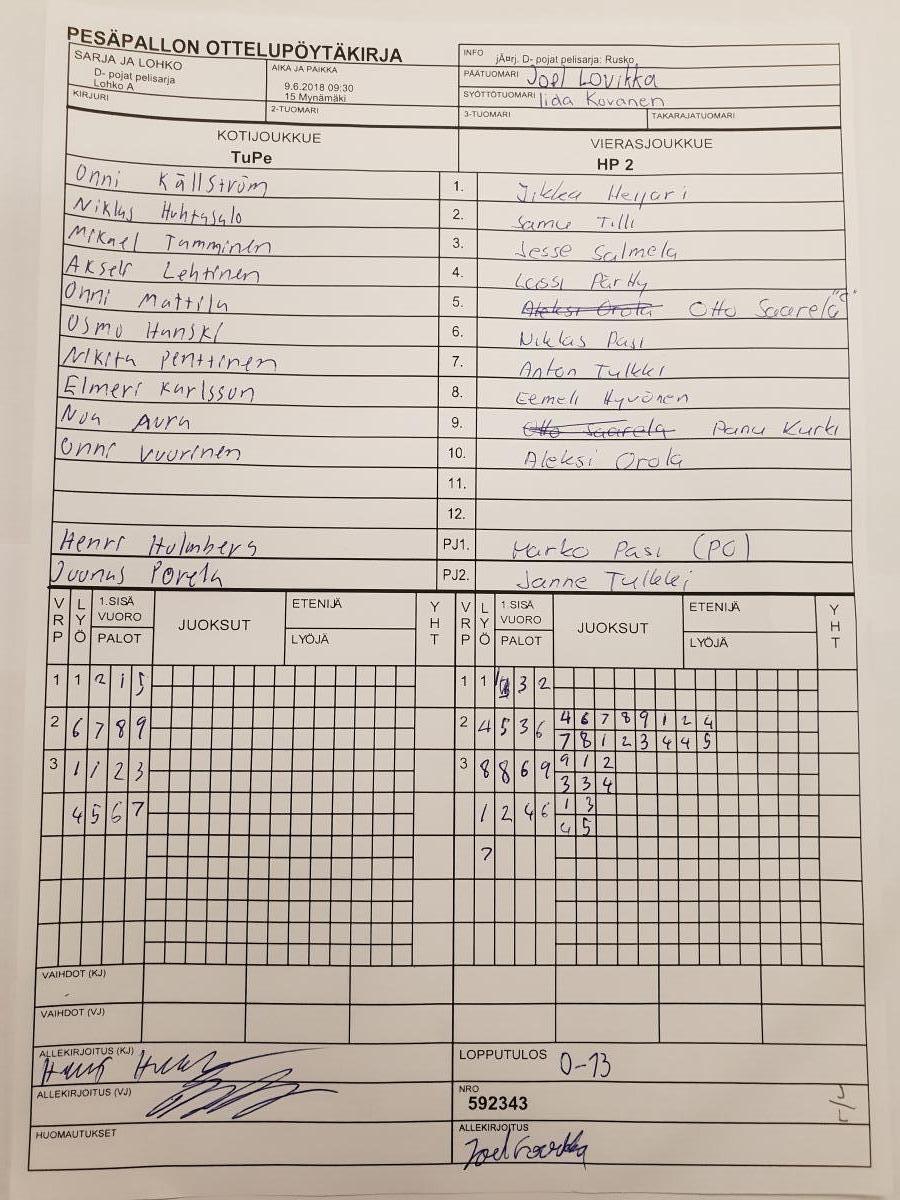 PESÄPALLON OTTELUPÖYTÄKIRJA
SARJA JA LOHKO
D- pojat pelisarja
Lohko A
AIKA JA PAIKKA
9.6.2018 09:30
15 Mynämäki
KIRJURI
2-TUOMARI
INFO
jÄ¤rj. D- pojat pelisarja: Rusko
PÄÄTUOMARI Joel Lovikka
SYÖTTÖTUOMARI Iida Kovanen
3-TUOMARI
TAKARAJATUOMARI
KOTIJOUKKUE
TuPe
VIERASJOUKKUE
HP 2
Onni Källström 1. Jikka
Niklas Huhtasalo 2. Samu Tilli
Mikael Tamminen 3. Jesse Salmela
Akseli Lehtinen 4. Lassi Pärtty
Onni Mattila 5. Aleksi Orola Otto Saarela "C"
Osmo Hanski 6. Niklas Pasi
Nikita Penttinen 7. Anton Tulkki
Elmeri Karlsson 8. Eemeli Hyvönen
Noa Aura 9. Otto Saarela Panu Kurki
Onni Vuorinen 10. Aleksi Orola
11.
12.
Henri Holmberg PJ1. Marko Pasi (PC)
Juunas Porela PJ2. Janne Tulkki
VRP LYÖ 1.SISÄ VUORO PALOT JUOKSUT ETENIJÄ LYÖJÄ YHT VRP LYÖ 1.SISÄ VUORO PALOT JUOKSUT ETENIJÄ LYÖJÄ YHT
1 1 2 1 5 1 1 3 2
2 6 7 8 9 2 4 5 3 6 4 6 7 8 9 1 2 4
7 8 1 2 3 4 4 5
3 1 1 2 3 3 8 8 6 9 9 1 2
3 3 4
4 5 6 7 1 2 4 6 1 3
4 5
7
VAIHDOT (KJ)
VAIHDOT (VJ)
ALLEKIRJOITUS (KJ)
LOPPUTULOS 0-13
ALLEKIRJOITUS (VJ)
NRO
592343
HUOMAUTUKSET
ALLEKIRJOITUS